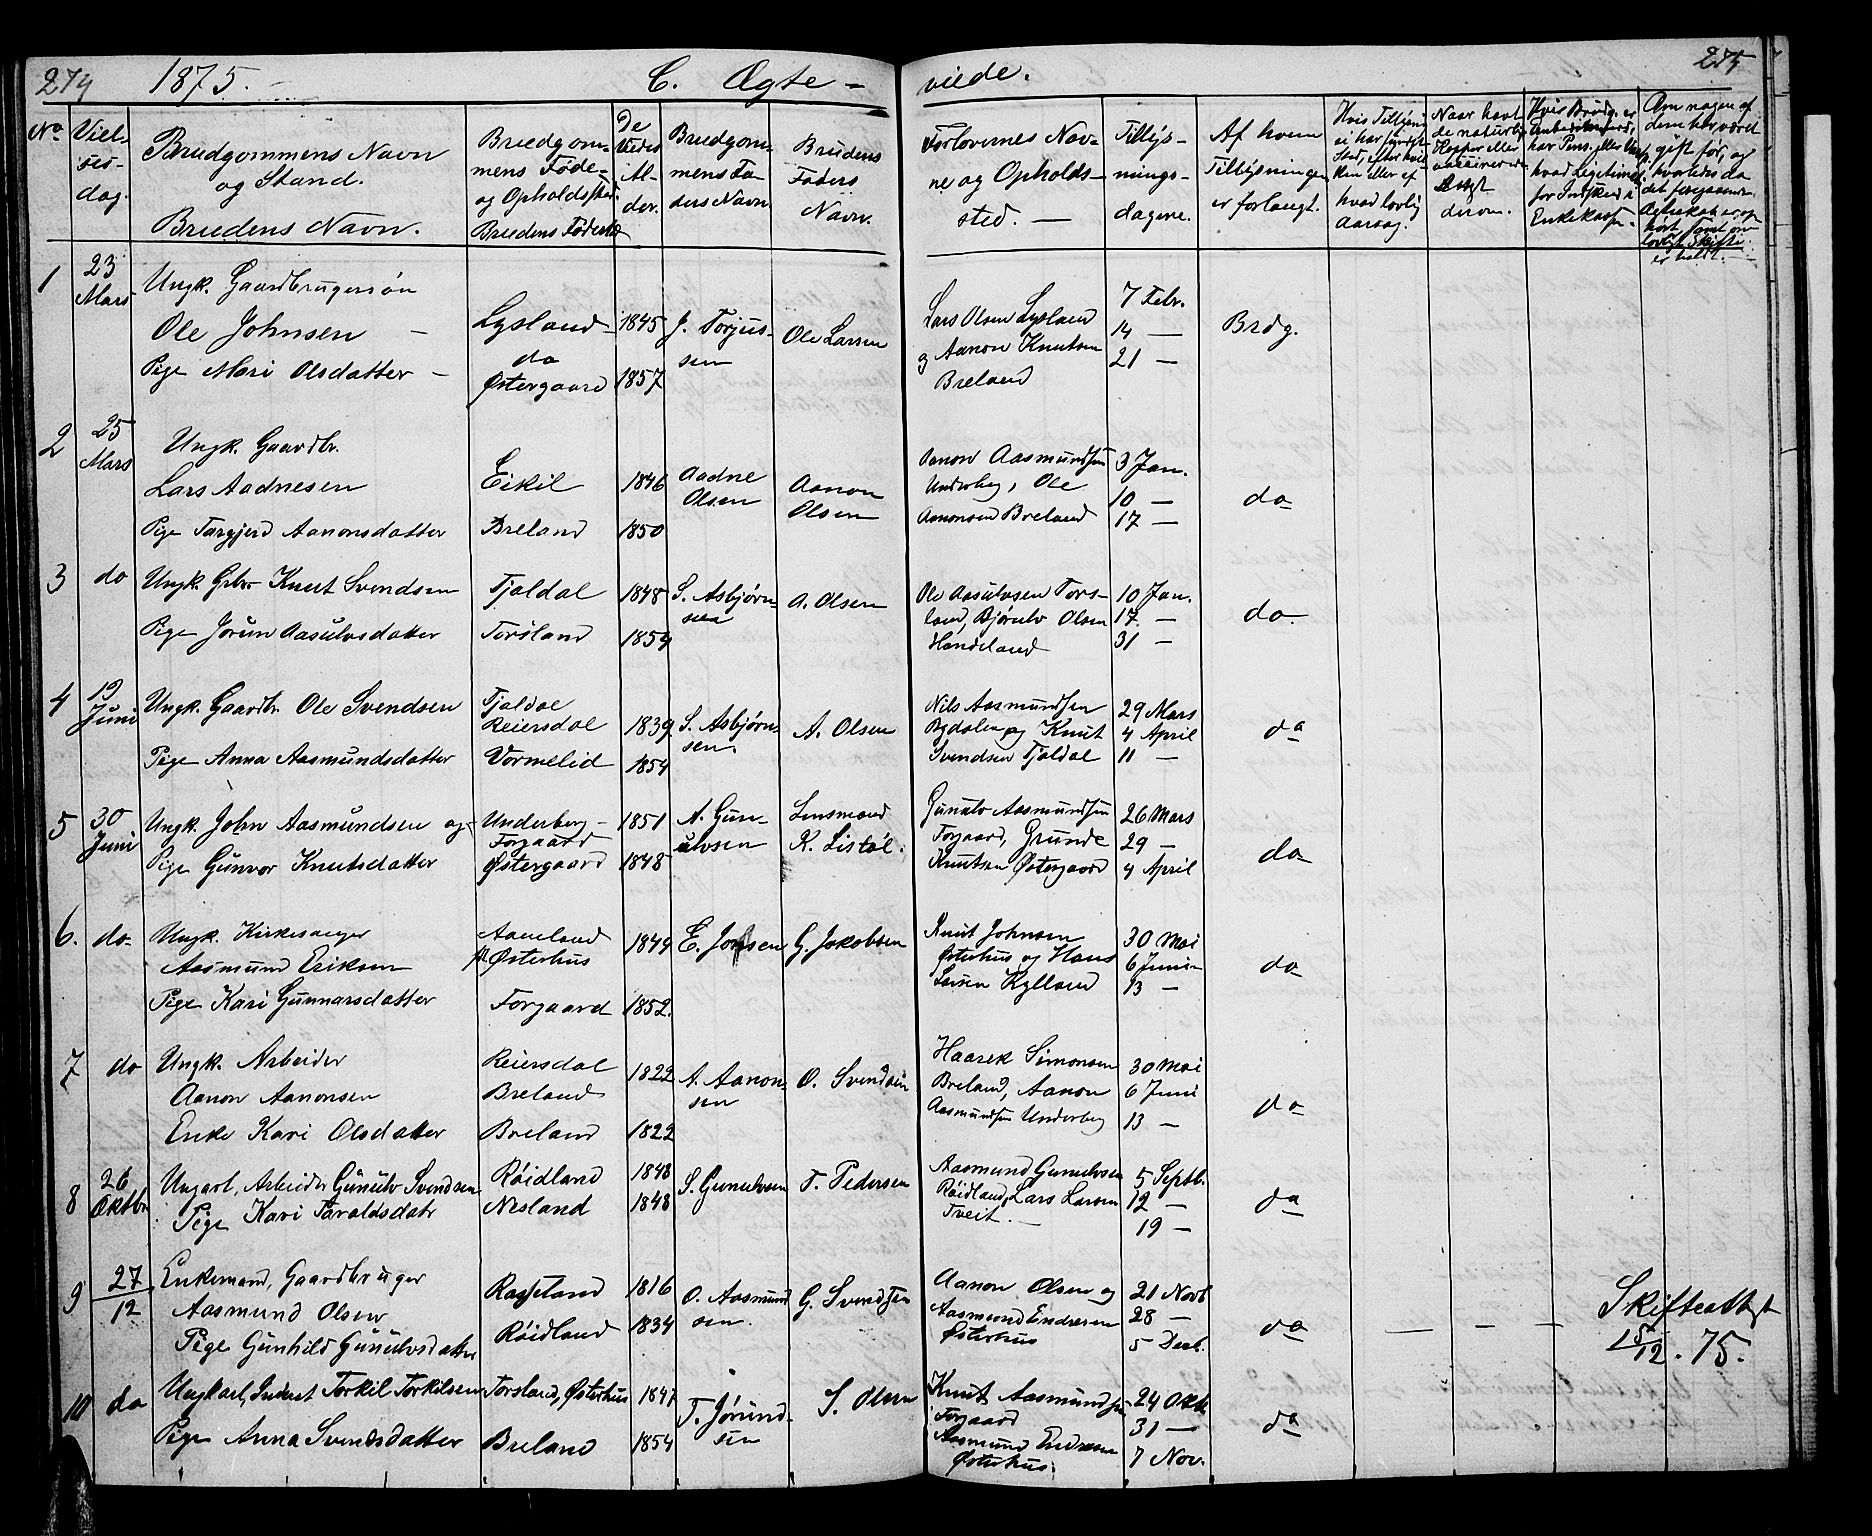 274 1875. C. Ægte-
viede. 275
No Viel-
ses-
dag.
Brudgommens Navn
og Stand.
Brudens Navn.
Brudgom-
mens Føde-
og Opholdssted.
Brudens Fødested
De
Viedes
Al-
der.
Brudgom-
mens Fa-
ders Navn
Brudens
Faders
Navn.
Forlovernes Nav-
ne og Opholds-
sted. —
Tillys-
nings-
dagene.
Af hvem
Tillysningen
er forlangt.
Hvis Tillysning
ei har fundet
Sted, efter hvil-
ken eller af
hvad lovlig
Aarsag.
Naar havt
de naturlig
Kopper eller
vaccinerede
Attest
derom.
Hvis Brudg. er
Embedsmand,
har Pens. eller
hvad Legitimas.
for Indskud i
Enkekassen.
Om nogen af
dem har været
gift før, og
hvorledes da
det foregaaende
Ægteskab er op-
hørt samt om
lovligt Skifte
er holdt. —
1 23
Mars
Ungk. Gaardbrugersøn
Ole Johnsen —
Pige Mari Olsdatter —
Lysland
do
Østergaard
1845
1857
J. Torjus-
sen
Ole Larsen
Lars Olsen Lysland
og Aanon Knutsen
Breland
7 Febr.
14 —
21 —
Brdg.
2 25
Mars
Ungk. Gaardbr.
Lars Aadnesen
Pige Targjerd Aanonsdatter
Eikil
Breland
1846
1850
Aadne
Olsen
Aanon
Olsen
Aanon Aasmundsen
Underberg, Ole
Aanonsen Breland
3 Jan.
10 —
17 —
do
3 do
Ungk. Grbr. Knut Svendsen
Pige Jorun Aasulvsdatter
Tjaldal
Torsland
1848
1854
S. Asbjørn-
sen
A. Olsen
Ole Aasulvsen Tors-
land, Bjørulv Olsen
Handeland
10 Jan.
17. —
31 —
do.
4 19
Juni
Ungk. Gaardbr. Ole Svendsen
Pige Anna Aasmundsdatter
Tjaldal
Reiersdal
Vormelid
1839
1854
S. Asbjørn-
sen.
A. Olsen
Nils Aasmundsen
Bydalen og Knut
Svendsen Tjaldal
29 Mars
4 April
11 —
do
5 30
Juni
Ungk. John Aasmundsen og
Pige Gunvor Knutsdatter
Underberg —
Forgaard
Østergaard
1851
1848
A. Gun-
ulvsen
Lensmand
K. Listøl.
Gunulv Aasmundsen
Forgaard, Grunde
Knutsen Østergaard
26 Mars
29 —
4 April
do
6. do.
Ungk. Kirkesanger
Aasmund Eriksen
Pige Kari Gunnarsdatter
Aaneland
Østerhus
Forgaard
1849
1852.
E. Jonsen
G. Jakobsen
Knut Johnsen
Østerhus og Hans
Larsen Kylland
30 Mai
6 Juni
13 —
do
7 do
Ungk. Arbeider
Aanon Aanonsen
Enke Kari Olsdatter
Reiersdal
Breland
Breland
1822
1822
A. Aanon-
sen
O. Svendsen
Haarek Simonsen
Breland, Aanon
Aasmundsen Underberg
30 Mai
6 Juni
13 —
do
8 26
Oktbr
Ungkarl, Arbeider Gunulv Svendsen
Pige Kari Taraldsdatr
Røidland
Nesland
1848
1848
S. Gunulvsen
T. Pedersen
Aasmund Gunulvsen
Røidland, Lars Larsen
Tveit. —
5 Septb.
12 —
19 —
do
9 27/12
Enkemand, Gaardbruger
Aasmund Olsen
Pige Gunhild Gunulvsdatter
Rosseland
Røidland
1816
1834
O. Aasmund
sen.
G. Svendsen
Aanon Olsen og
Aasmund Endresen
Østerhus
21 Novb
28 —
5 Decb.
do — — —
Skifteattest
15/12. 75.
10 do
Ungkarl, Inderst Torkil Torkilsen
Pige Anna Svendsdatter
Torsland, Østerhus
Breland
1847
1854
T. Jørund-
sen
S. Olsen
Knut Aasmundsen
Forgaard
Aasmund Endresen
Østerhus.
24 Oktb
31 —
7 Nov.
do